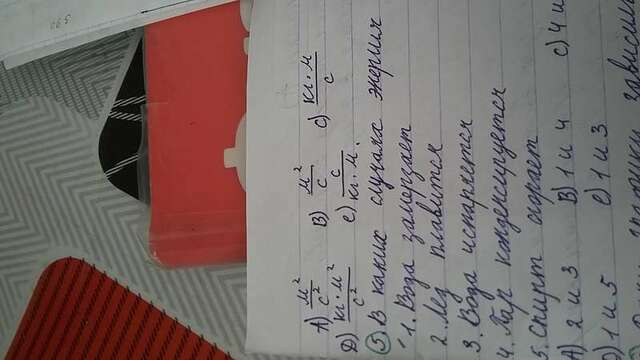 А) м²/с² В) м²/с С) кг·м/с
D) кг·м²/с² е) с/кг·м.
⑤ В каких случаях энергии
1. Вода замерзает
2. Лёд плавится
3. Вода испаряется
4. Пар конденсируется
Спирт сгорает
2 и 3 В) 1 и 4 С) 4 и
1 и 5 е) 1 и 3